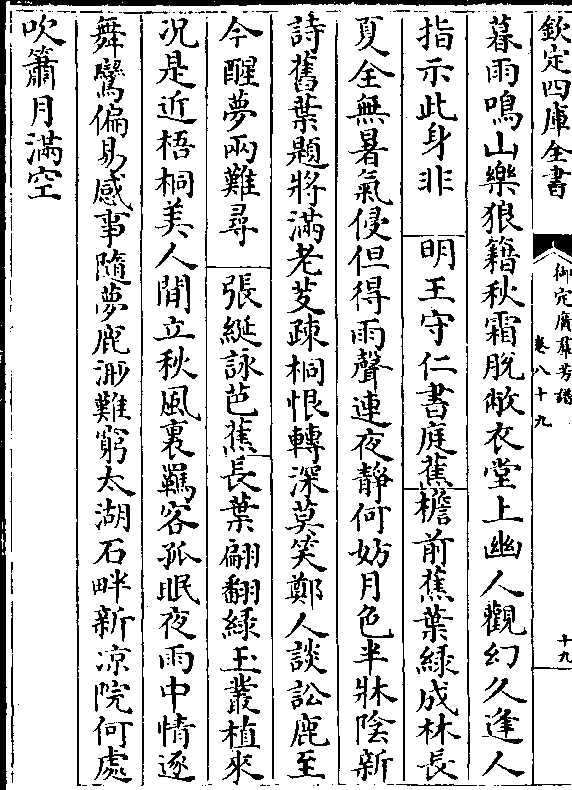 欽定四庫全書
御定廣羣芳譜
卷八十九
十九
暮雨鳴山樂狼籍秋霜脫敝衣堂上幽人觀幻久逢人
指示此身非　明王守仁書庭蕉檐前蕉葉緑成林長
夏全無暑氣侵但得雨聲連夜靜何妨月色半牀陰新
詩舊葉題將滿老芰疎桐恨轉深莫笑鄭人談訟鹿至
今醒夢兩難尋　張綖詠芭蕉長葉翩翻緑玉叢植來
况是近梧桐美人閒立秋風裏羈客孤眠夜雨中情逐
舞鸞偏易感事隨夢鹿渺難窮太湖石畔新凉院何處
吹簫月滿空